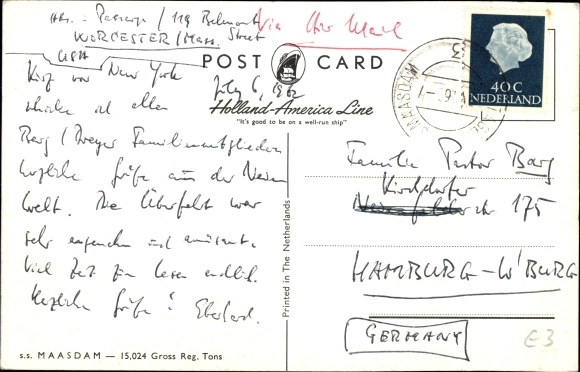 Abs. - / 119 Belmont
WORCESTER / Mass. Street
USA
Via Air Mail
POST CARD
July 6, 1962
Holland-America Line
"It's good to be on a well-run ship"
40 C
NEDERLAND
MAASDAM
Kurz vor New York
schicke ich allen
Barg / Dreyer Familienmitgliedern
herzliche Grüße aus der Neuen
Welt. Die Überfahrt war
sehr angenehm und amüsant.
Viel Zeit zum Lesen endlich.
Herzliche Grüße! Eberhard.
Familie Pastor Barg
Kirchdorfer
str 175
HAMBURG-W'BURG
GERMANY
€3
Printed in The Netherlands
s.s. MAASDAM — 15,024 Gross Reg. Tons